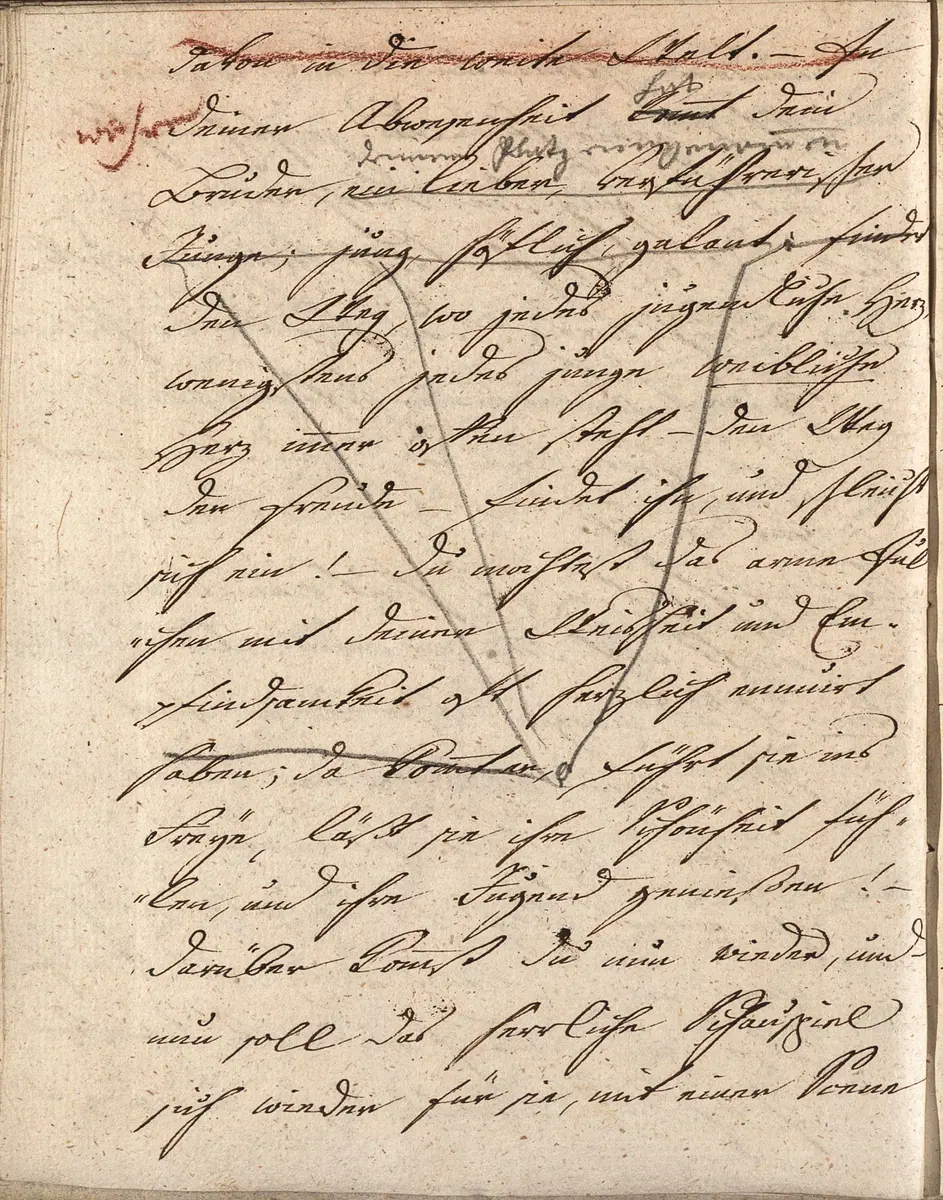 davon in die weite Welt. – In
während
deiner Abwesenheit kom̄t dein
hat
deinen Platz eingenom̄en
Bruder, ein lieber, verführerischer
Junge; jung, höflich, galant; findet
den Weg, wo jedes jugendliche Herz,
wenigstens jedes junge weibliche
Herz im̄er offen steht – den Weg
der Freude – findet ihn, und schleicht
sich ein! – du mochtest das arme Jul
"chen mit deiner Weisheit und Em-
pfindsamkeit oft herzlich ennuirt
haben; da kom̄t er, führt sie ins
Freye, läßt sie ihre Schönheit füh-
"len, und ihre Jugend genießen! –
darüber kom̄st du nun wieder, und
nun soll das herrliche Schauspiel
sich wieder für sie, mit einer Scene